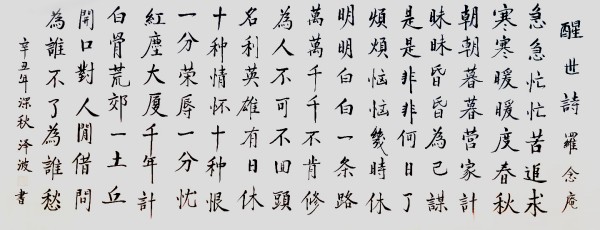 醒世詩 羅念庵
急急忙忙苦追求
寒寒暖暖度春秋
朝朝暮暮營家計
昧昧昏昏為己謀
是是非非何日了
煩煩惱惱幾時休
明明白白一条路
萬萬千千不肯修
為人不可不回頭
名利英雄有日休
十种情怀十种恨
一分榮辱一分忧
紅塵大厦千年計
白骨荒郊一土丘
開口對人閒借問
為誰不了為誰愁
辛丑年深秋 泽波 書